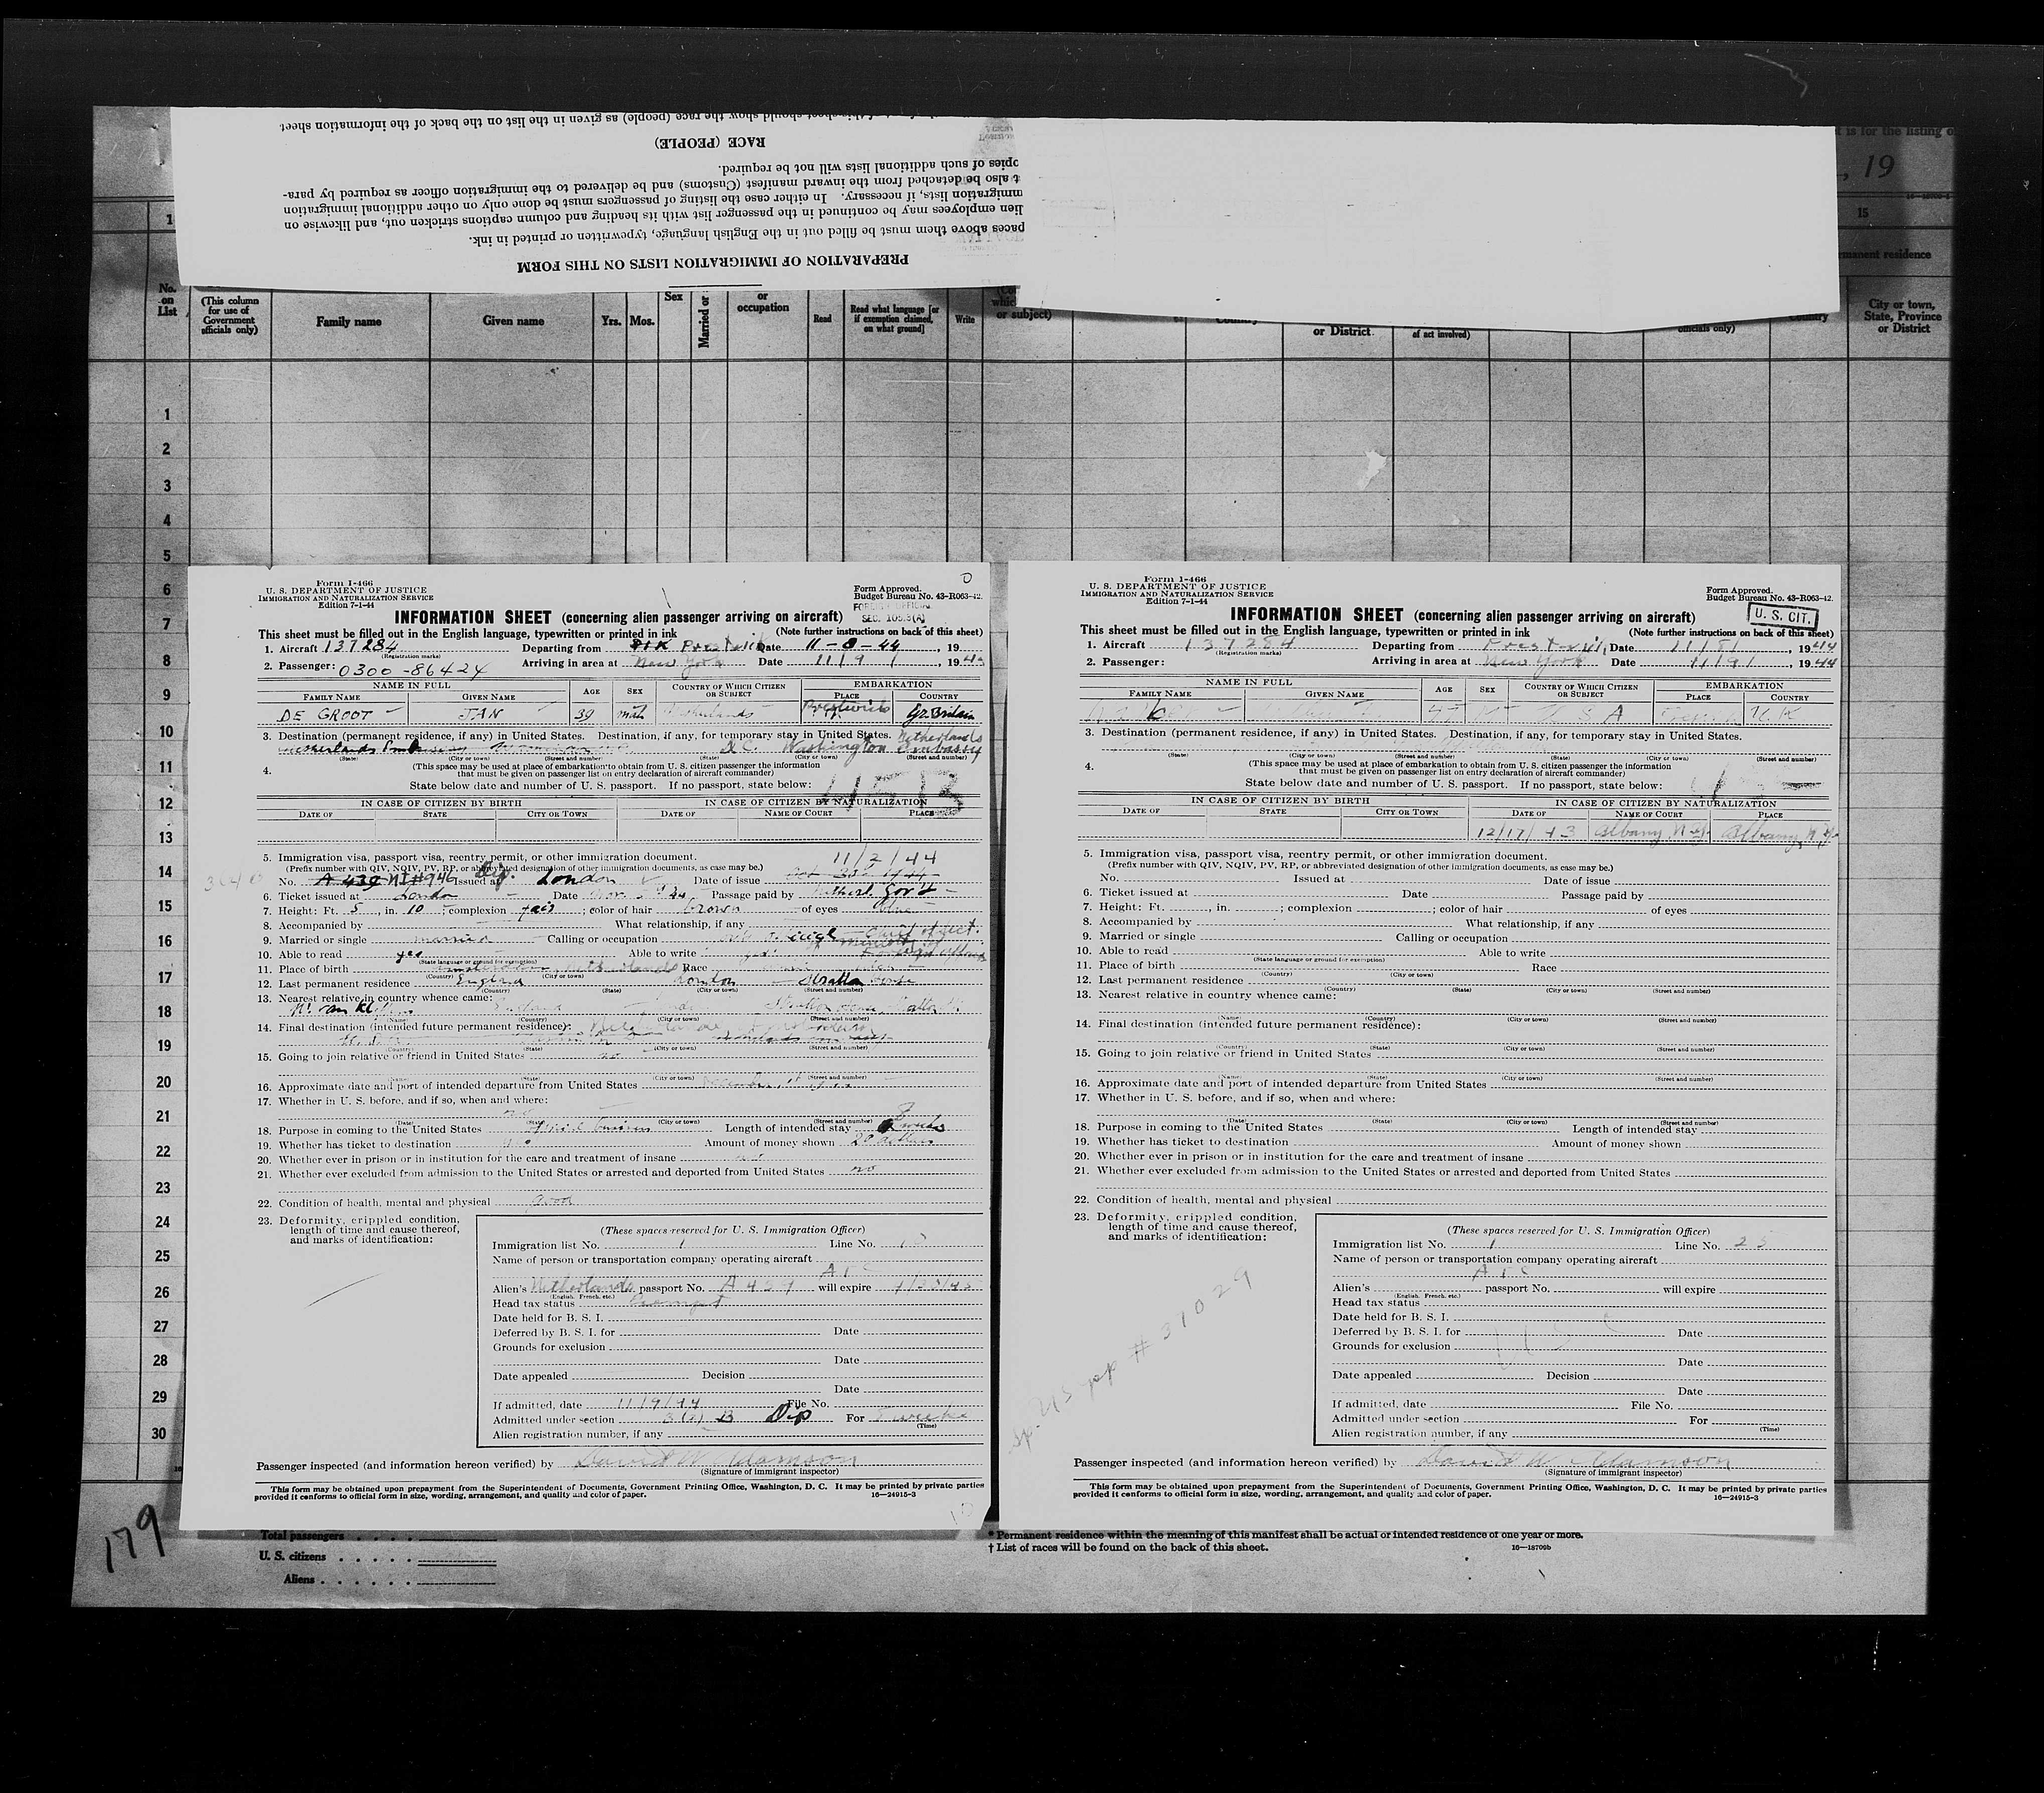 sheet should show the race (people) as given in the list on the back of the information sheet.
RACE (PEOPLE)
opies of such additional lists will not be required.
t also be detached from the inward manifest (Customs) and be delivered to the immigration officer as required by para-
mmigration lists, if necessary. In either case the listing of passengers must be done only on other additional immigration
lien employees may be continued in the passenger list with its heading and column captions stricken out, and likewise on
paces above them must be filled out in the English language, typewritten or printed in ink.
PREPARATION OF IMMIGRATION LISTS ON THIS FORM
is for the listing o
, 19
15
manent residence
No. on List
(This column for use of Government officials only)
Family name
Given name
Yrs.
Mos.
Sex
Married or
or occupation
Read
Read what language [or if exemption claimed, on what ground]
Write
or subject)
or District
of act involved)
officials only)
Country
City or town, State, Province or District
1
2
3
4
5
6
7
8
9
10
11
12
13
14
15
16
17
18
19
20
21
22
23
24
25
26
27
28
29
30
179
Form I-466
U. S. DEPARTMENT OF JUSTICE
IMMIGRATION AND NATURALIZATION SERVICE
Edition 7-1-44
Form Approved.
Budget Bureau No. 43-R063-42.
FOREIGN OFFICIAL
INFORMATION SHEET (concerning alien passenger arriving on aircraft)
This sheet must be filled out in the English language, typewritten or printed in ink (Note further instructions on back of this sheet)
1. Aircraft 137284 Departing from Prestwick Date 11-8-44, 19
(Registration marks)
2. Passenger: 0300-86424 Arriving in area at New York Date 11/9/, 1944
NAME IN FULL AGE SEX COUNTRY OF WHICH CITIZEN OR SUBJECT EMBARKATION
FAMILY NAME GIVEN NAME PLACE COUNTRY
DE GROOT JAN 39 male Netherlands Prestwick Gr. Britain
3. Destination (permanent residence, if any) in United States. Destination, if any, for temporary stay in United States. Netherlands
D.C. Washington Embassy
(State) (City or town) (Street and number) (State) (City or town) (Street and number)
4. (This space may be used at place of embarkation to obtain from U. S. citizen passenger the information
that must be given on passenger list on entry declaration of aircraft commander)
State below date and number of U. S. passport. If no passport, state below:
IN CASE OF CITIZEN BY BIRTH IN CASE OF CITIZEN BY NATURALIZATION
DATE OF STATE CITY OR TOWN DATE OF NAME OF COURT PLACE
5. Immigration visa, passport visa, reentry permit, or other immigration document. 11/2/44
(Prefix number with QIV, NQIV, PV, RP, or abbreviated designation of other immigration documents, as case may be.)
No. A 439 NI#946 Issued at London Date of issue
6. Ticket issued at London Date Passage paid by Netherl. Gov't
7. Height: Ft. 5, in. 10; complexion fair; color of hair brown of eyes blue
8. Accompanied by What relationship, if any
9. Married or single married Calling or occupation Chief of sect.
10. Able to read yes Able to write yes
(State language or ground for exemption)
11. Place of birth Amsterdam, Netherlands Race
(Country) (City or town)
12. Last permanent residence England London Stratton House
(Country) (State) (City or town) (Street and number)
13. Nearest relative in country whence came:
(Name) (Country) (City or town) (Street and number)
14. Final destination (intended future permanent residence): Netherlands
(Country) (State) (City or town) (Street and number)
15. Going to join relative or friend in United States no
(Name) (State) (City or town) (Street and number)
16. Approximate date and port of intended departure from United States December
17. Whether in U. S. before, and if so, when and where:
no
(Date) (State) (City or town) (Street and number)
18. Purpose in coming to the United States Length of intended stay weeks
19. Whether has ticket to destination Amount of money shown 20 dollars
20. Whether ever in prison or in institution for the care and treatment of insane
21. Whether ever excluded from admission to the United States or arrested and deported from United States no
22. Condition of health, mental and physical good
23. Deformity, crippled condition, length of time and cause thereof, and marks of identification:
(These spaces reserved for U. S. Immigration Officer)
Immigration list No. 1 Line No.
Name of person or transportation company operating aircraft
Alien's Netherlands passport No. will expire
(English, French, etc.)
Head tax status Exempt
Date held for B. S. I.
Deferred by B. S. I. for Date
Grounds for exclusion
Date
Date appealed Decision
Date
If admitted, date 11/9/44 File No.
Admitted under section 3(1) B Dip For weeks
(Time)
Alien registration number, if any
Passenger inspected (and information hereon verified) by David W. Adamson
(Signature of immigrant inspector)
This form may be obtained upon prepayment from the Superintendent of Documents, Government Printing Office, Washington, D. C. It may be printed by private parties
provided it conforms to official form in size, wording, arrangement, and quality and color of paper. 16—24915-3
Form I-466
U. S. DEPARTMENT OF JUSTICE
IMMIGRATION AND NATURALIZATION SERVICE
Edition 7-1-44
Form Approved.
Budget Bureau No. 43-R063-42.
U. S. CIT.
INFORMATION SHEET (concerning alien passenger arriving on aircraft)
This sheet must be filled out in the English language, typewritten or printed in ink (Note further instructions on back of this sheet)
1. Aircraft 137284 Departing from Prestwick Date 11/8/, 1944
(Registration marks)
2. Passenger: Arriving in area at New York Date 11/9/, 1944
NAME IN FULL AGE SEX COUNTRY OF WHICH CITIZEN OR SUBJECT EMBARKATION
FAMILY NAME GIVEN NAME PLACE COUNTRY
U S A U.K
3. Destination (permanent residence, if any) in United States. Destination, if any, for temporary stay in United States.
(State) (City or town) (Street and number) (State) (City or town) (Street and number)
4. (This space may be used at place of embarkation to obtain from U. S. citizen passenger the information
that must be given on passenger list on entry declaration of aircraft commander)
State below date and number of U. S. passport. If no passport, state below:
IN CASE OF CITIZEN BY BIRTH IN CASE OF CITIZEN BY NATURALIZATION
DATE OF STATE CITY OR TOWN DATE OF NAME OF COURT PLACE
12/17/43 Albany N.Y. Albany, N.Y.
5. Immigration visa, passport visa, reentry permit, or other immigration document.
(Prefix number with QIV, NQIV, PV, RP, or abbreviated designation of other immigration documents, as case may be.)
No. Issued at Date of issue
6. Ticket issued at Date Passage paid by
7. Height: Ft. , in. ; complexion ; color of hair of eyes
8. Accompanied by What relationship, if any
9. Married or single Calling or occupation
10. Able to read Able to write
(State language or ground for exemption)
11. Place of birth Race
(Country) (City or town)
12. Last permanent residence
(Country) (State) (City or town) (Street and number)
13. Nearest relative in country whence came:
(Name) (Country) (City or town) (Street and number)
14. Final destination (intended future permanent residence):
(Country) (State) (City or town) (Street and number)
15. Going to join relative or friend in United States
(Name) (State) (City or town) (Street and number)
16. Approximate date and port of intended departure from United States
17. Whether in U. S. before, and if so, when and where:
(Date) (State) (City or town) (Street and number)
18. Purpose in coming to the United States Length of intended stay
19. Whether has ticket to destination Amount of money shown
20. Whether ever in prison or in institution for the care and treatment of insane
21. Whether ever excluded from admission to the United States or arrested and deported from United States
22. Condition of health, mental and physical
23. Deformity, crippled condition, length of time and cause thereof, and marks of identification:
Sp. US pp # 31029
(These spaces reserved for U. S. Immigration Officer)
Immigration list No. 1 Line No.
Name of person or transportation company operating aircraft
Alien's passport No. will expire
(English, French, etc.)
Head tax status
Date held for B. S. I.
Deferred by B. S. I. for Date
USC
Grounds for exclusion
Date
Date appealed Decision
Date
If admitted, date File No.
Admitted under section For
(Time)
Alien registration number, if any
Passenger inspected (and information hereon verified) by David W. Adamson
(Signature of immigrant inspector)
This form may be obtained upon prepayment from the Superintendent of Documents, Government Printing Office, Washington, D. C. It may be printed by private parties
provided it conforms to official form in size, wording, arrangement, and quality and color of paper. 16—24915-3
Total passengers
U. S. citizens
Aliens
* Permanent residence within the meaning of this manifest shall be actual or intended residence of one year or more.
† List of races will be found on the back of this sheet. 16—18709b